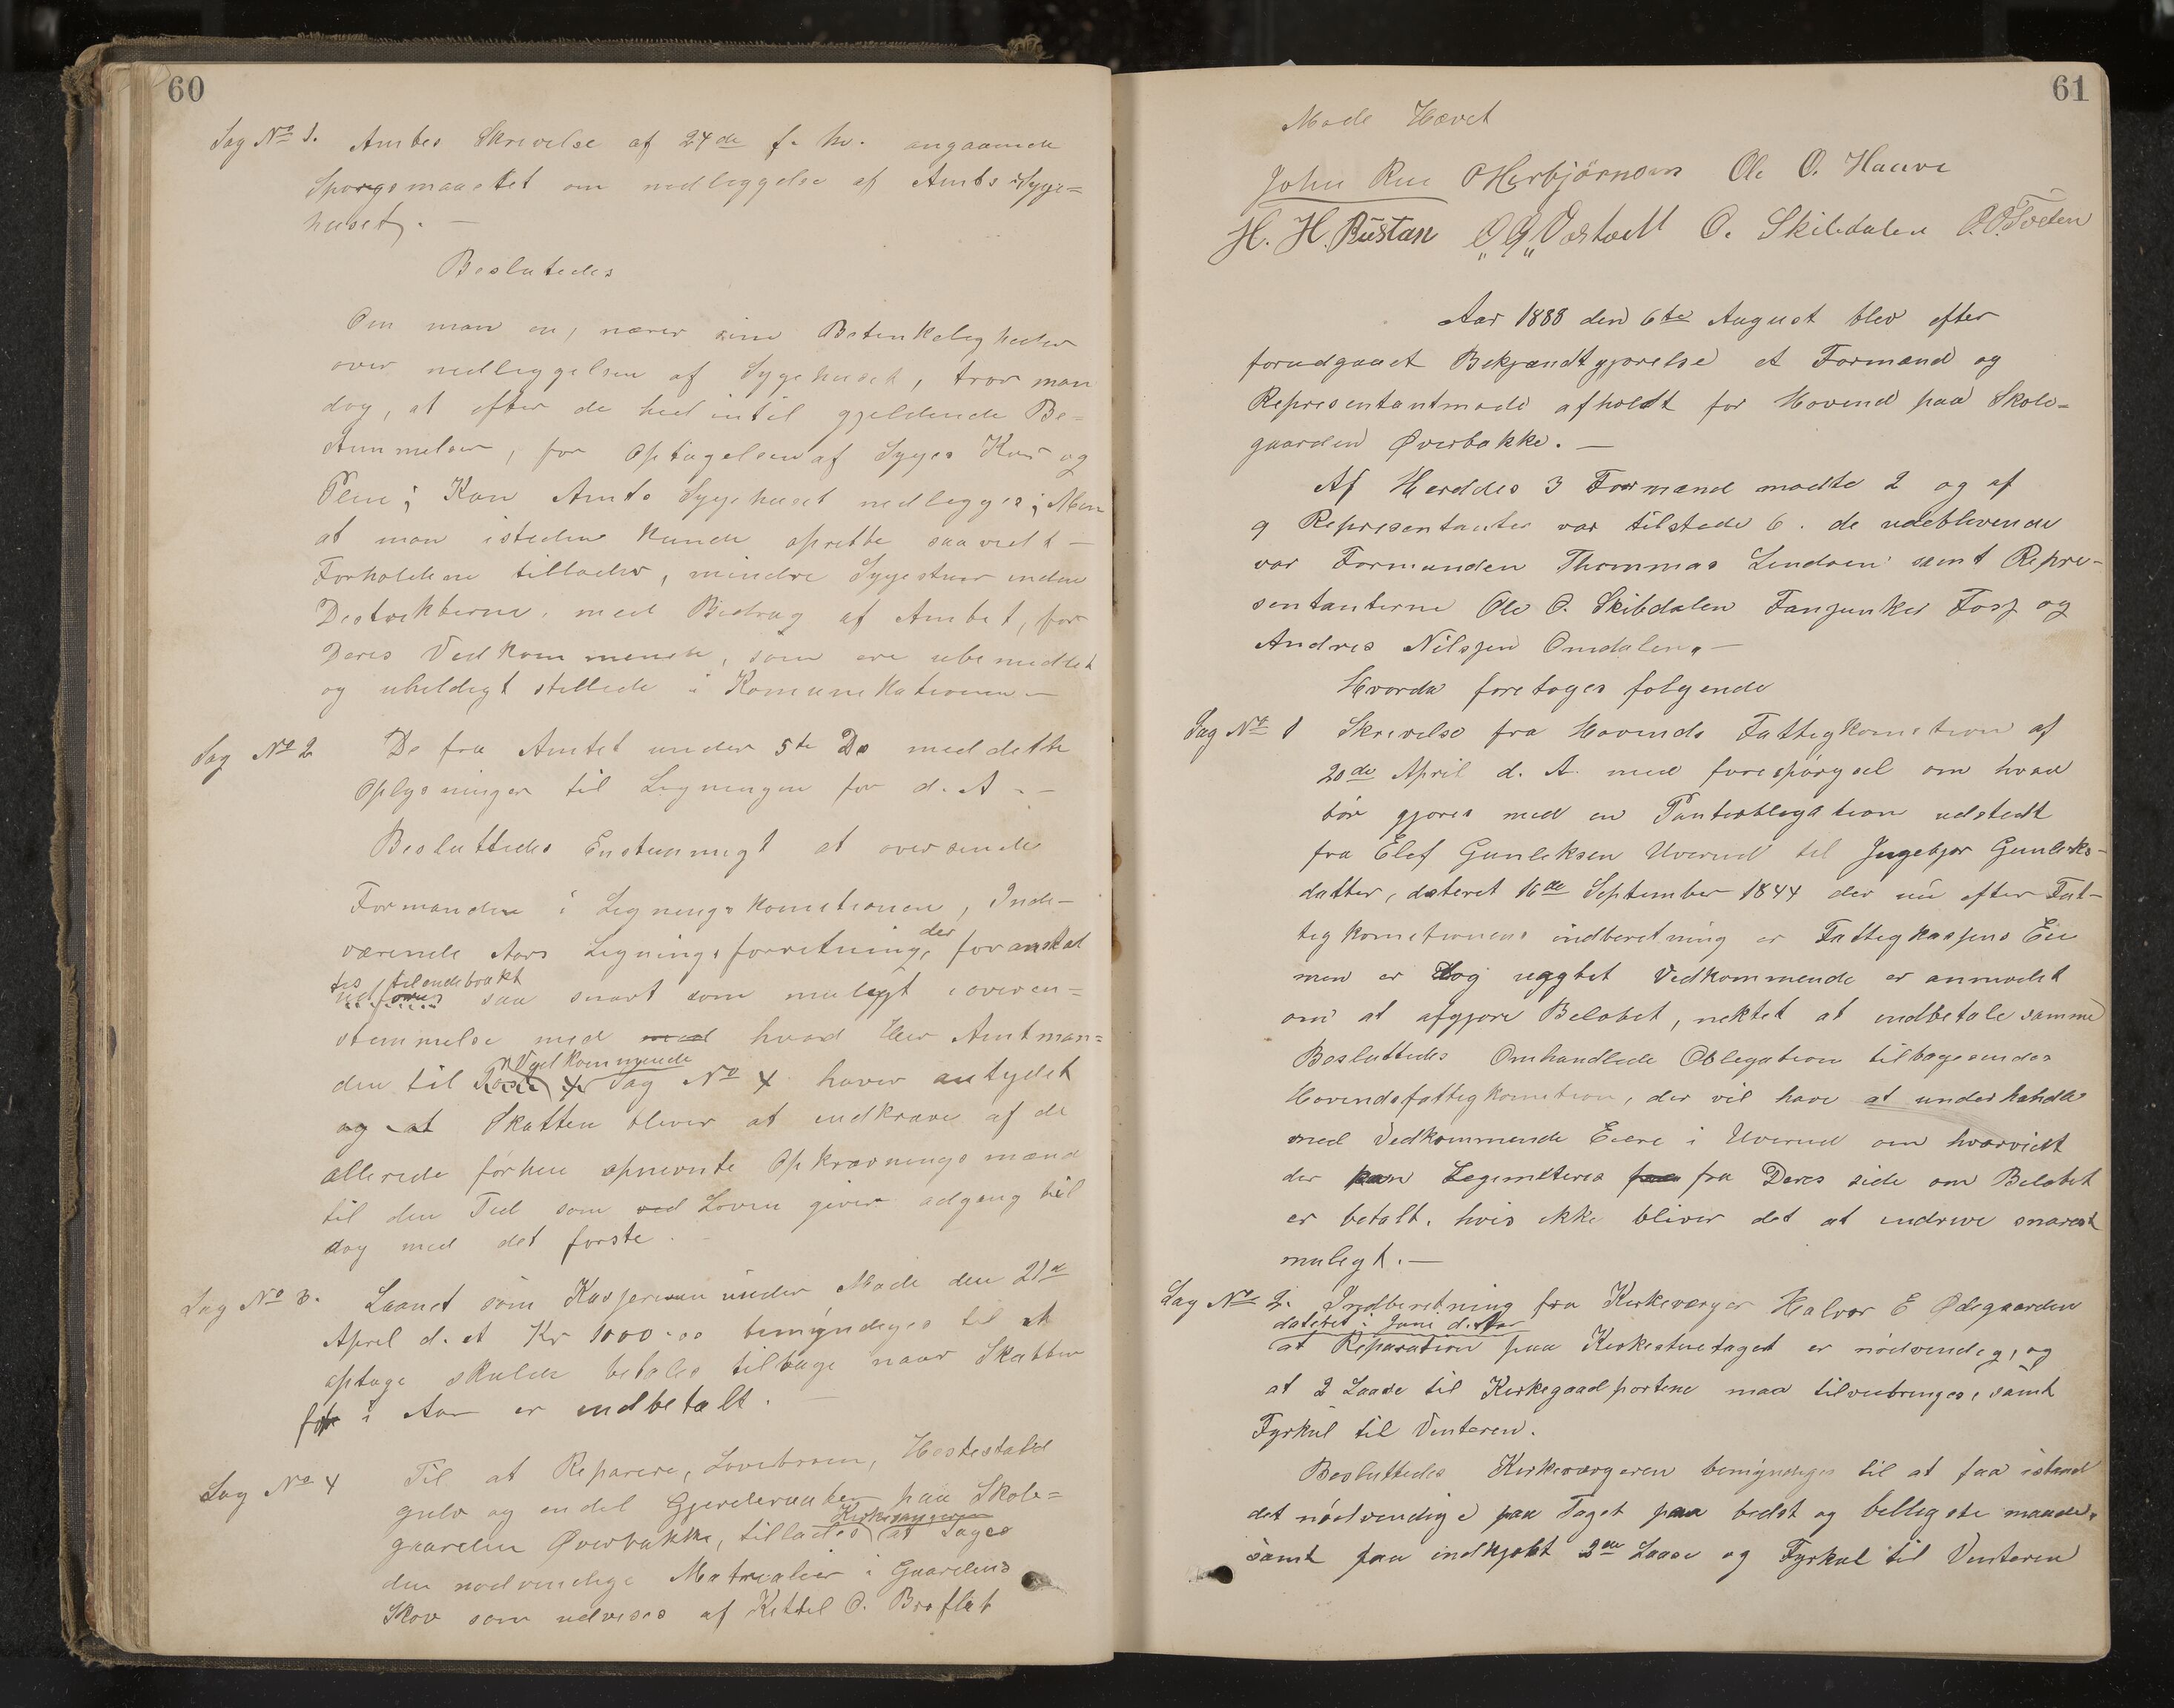 60
Sag No 1. Amtes Skrivelse af 24de f. m. angaaende
Sporgsmaalet om nedleggelse af Amts Syge=
huset. —
Beslutedes
Om man en, nærer sine Betenkeligheder
over nedleggelsen af Sygehuset, tror man
dog, at efter de hed intil gjeldende Be=
stemmelser, for Optagelsen af Syges Kur og
Pleie; Kan Amts Sygehuset nedlegges; Men
at man isteden kunde oprette saavidt —
Forholdene tillader, mindre Sygestuer inden
Destrekterne, med Bidrag af Amtet, for
Deres Vedkommende, som ere ubemidlet
og uheldigt stillede i Komunekationen —
Sag No 2 De fra Amtet under 5te Ds meddelte
Oplysninger til Ligningen for d. A. —
Besluttedes Enstemmigt at oversende
Formanden i Ligningskomitionen, Inde-
værende Aars Ligningsforretning, der foranstal
tes tilendebrakt
udføres saa snart som muligt i overen=
stemmelse med med hvad Her Amtman=
den til Vedkommende Sag No 4 haver antydet
og at Skatten bliver at indkræve af de
allerede førhen opnevnte Opkrævnings mænd
til den Tid som ved Loven giver adgang til
dog med det første.
Sag No 3. Laanet som Kasjereren under Mode den 21de
April d. A Kr 1000.00 bemyndiges til at
optage skulde betales tilbage naar Skatten
for i Aar er indbetalt. —
Sag No 4 Til at Reparere, Lovebroen, Hestestald
gulv og endel Gjerderaaber paa Skole=
Kirkesangeren
gaarden Øverbakke, tillades at tages
den nodvendige Matrealier i Gaardens
Skov som udvises af Kittel O. Broflat
61
Mode Hævet
John Rue OHerbjörnsen Ole O. Haave
H. H. Bustan O G Værtoell O. Skibdalen O.O.Tveten
Aar 1888 den 6te August blev efter
forudgaaet Bekjændtgjorelse et Formænd og
Representantmode afholdt for Hovind paa Skole=
gaarden Øverbakke. —
Af Herddes 3 Formænd modte 2 og af
9 Representanter var tilstede 6. de udeblevende
var Formanden Thommas Lindsen samt Repre-
sentanterne Ole O. Skibdalen Fanjunker Fosz og
Andres Nilsjen Omdalen. —
Hvorda foretoges folgende
Sag No 1 Skrivelse fra Hovinds Fattigkomition af
20de April d. A. med forespörgsel om hvad
bör gjores med en Pantobligation udstedt
fra Elef Gunleksen Uverud til Ingebjor Gunleks-
datter, dateret 16de September 1844 der nu efter Fat-
tigkomitionens indberetning er Fattigkassens Eie
men er dog uagtet Vedkommende er anmodet
om at afgjore Belobet, nektet at indbetale samme
Besluttedes Omhandlede Obligation tilbagesendes
Hovindsfattigkomition, der vil have at underhandle
med Vedkommende Eiere i Uverud om hvorvidt
der kan Legimiteres fra Deres side om Belobet
er betalt, hvis ikke bliver det at indrive snarest
muligt. —
Sag No 2. Indberetning fra Kirkeværger Halvor E Ødegaarden
dateret i Juni d. Aar
at Reparation paa Kirkestuetaget er nödvendig, og
at 2 Laase til Kirkegaadportene maa tilveiebringes, samt
Fyrkul til Vinteren.
Besluttedes Kirkeværgeren bemyndiges til at faa istand
det nödvendige paa Taget paa bedst og billigste maade,
samt faa indkjobt 2de Laase og Fyrkul til Vinteren